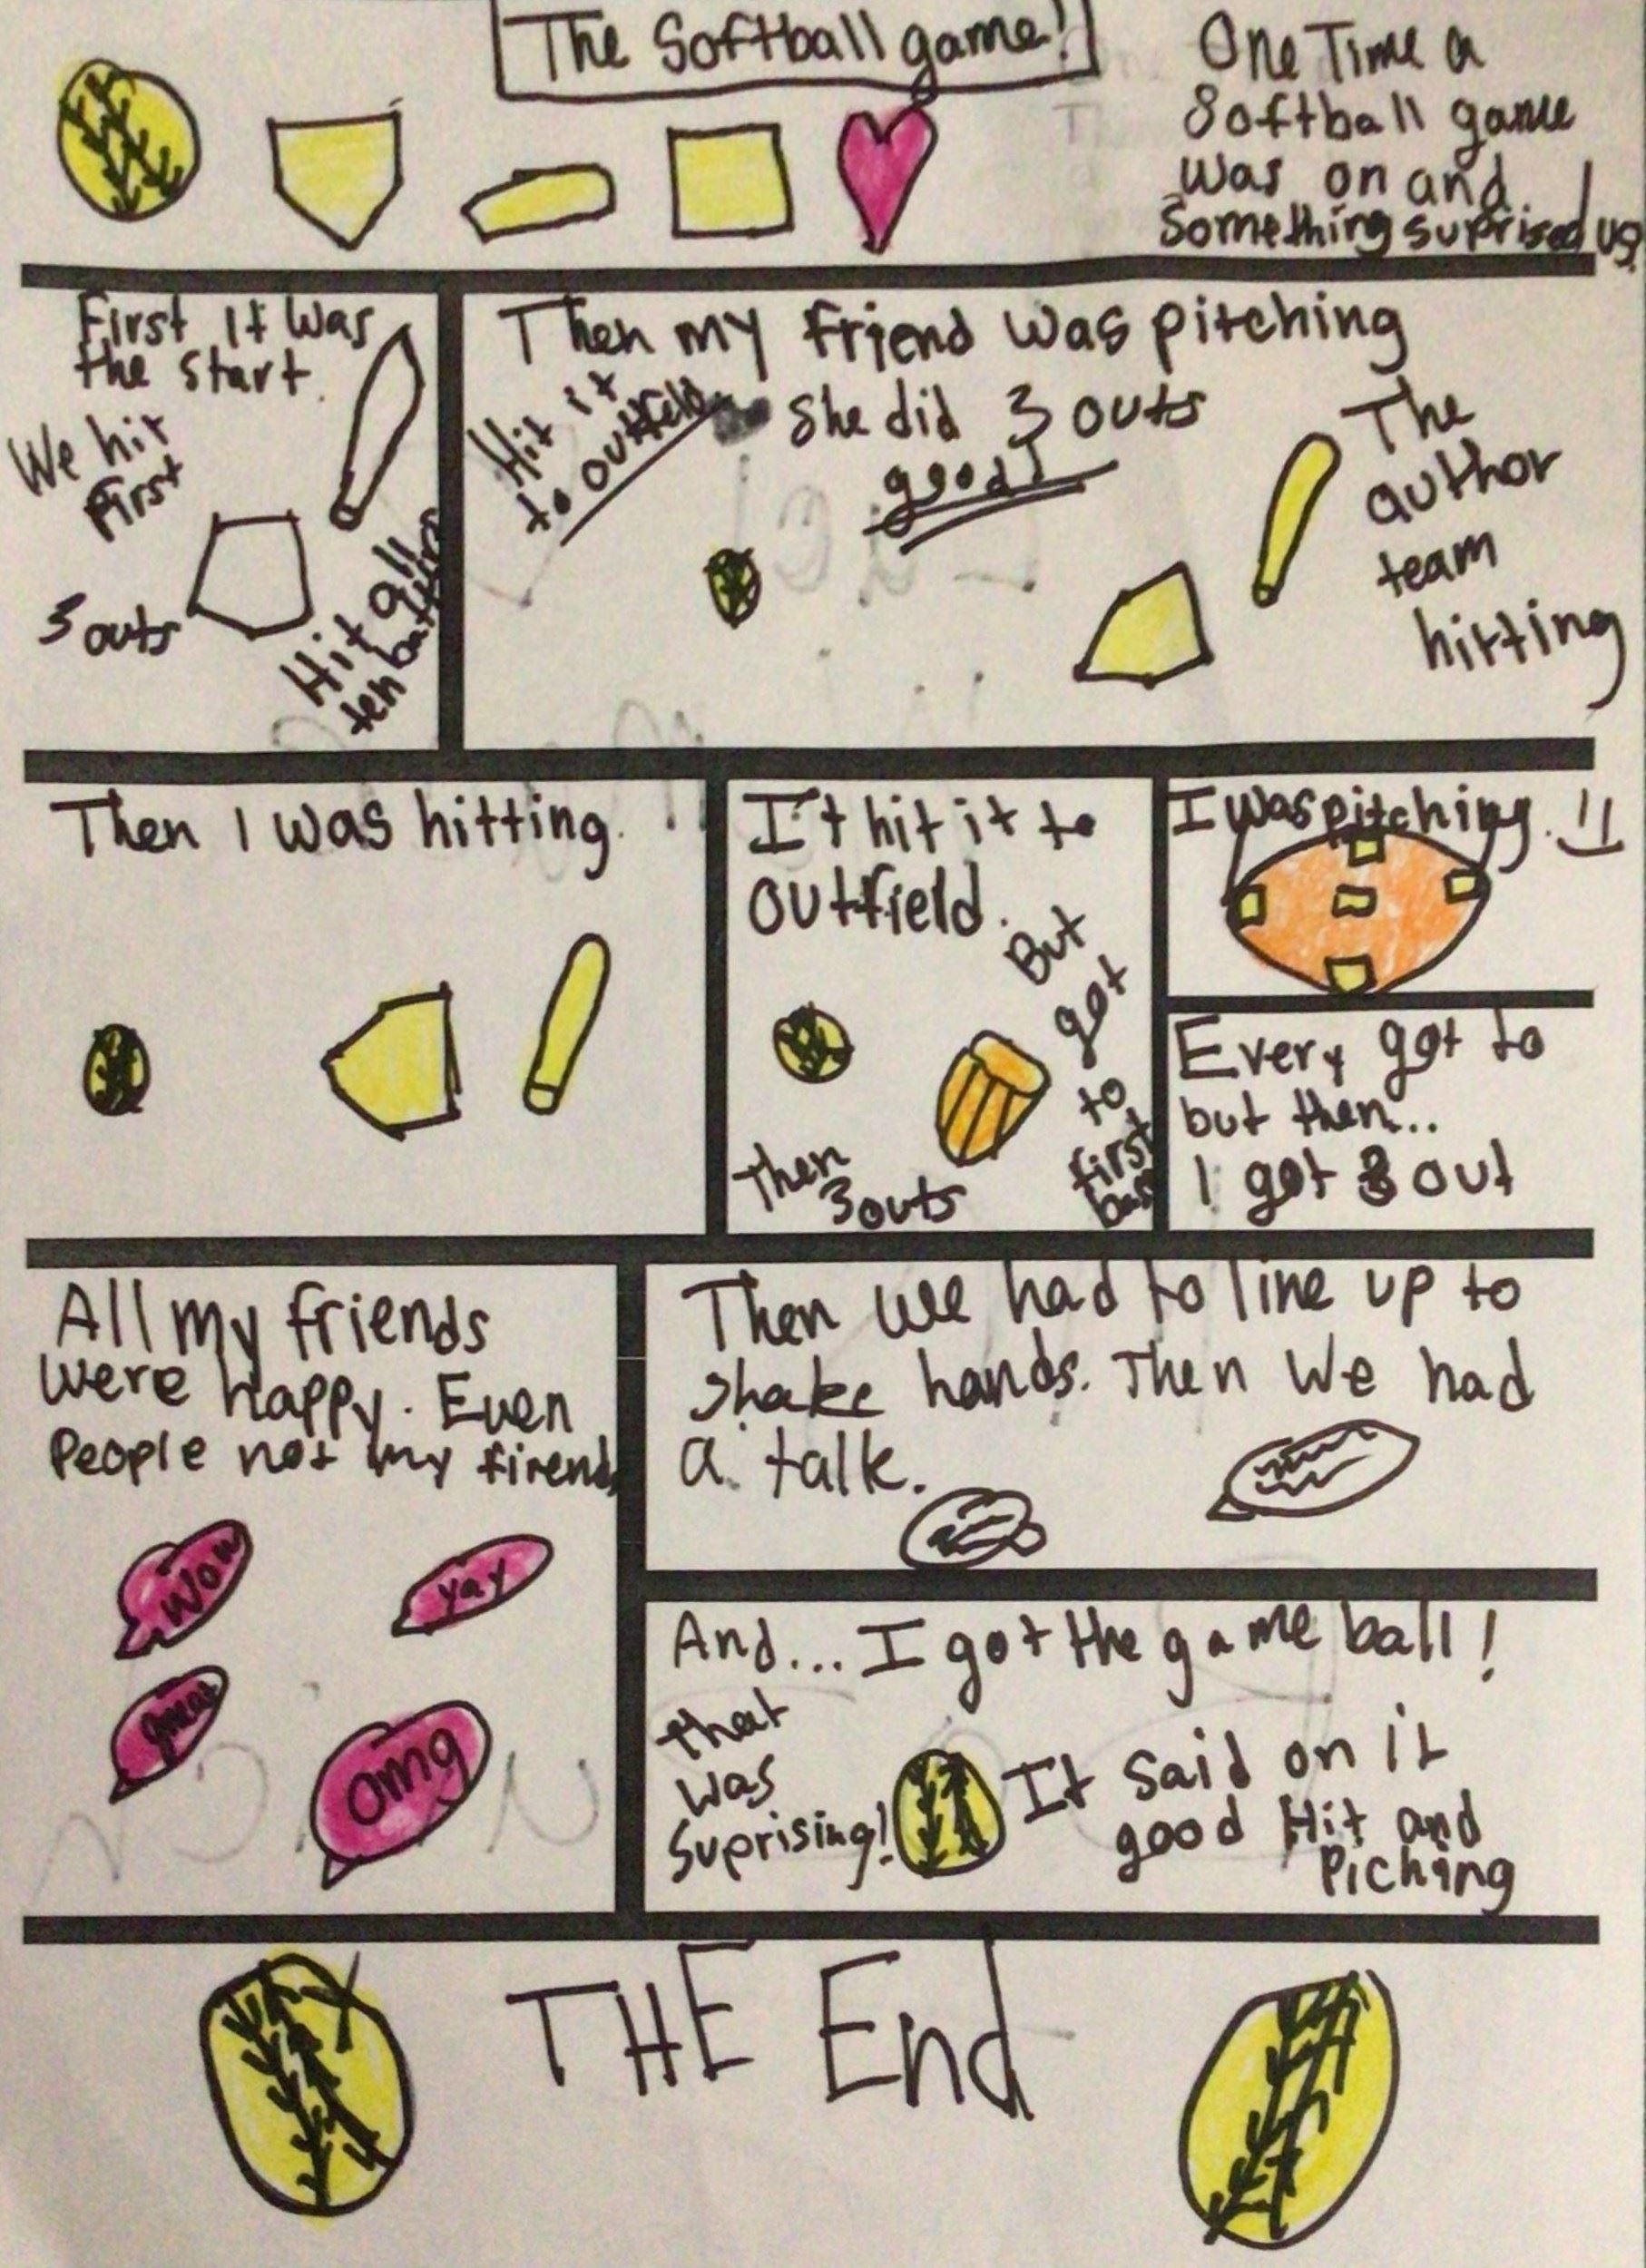 The Softball game!
One Time a
Softball game
was on and
Something suprised us!
First it was
the start.
We hit
first
3 outs
Hit all
ten batters
Then my friend was pitching
She did 3 outs
good!
Hit it
to outfeld
The
author
team
hitting
Then I was hitting.
I't hit it to
outfield.
But
got
to
first
base
Then
3 outs
I was pitching.
Every got to
but then...
I got 3 out
All my friends
were happy. Even
People not my firends
Wow
yay
great
omg
Then we had to line up to
shake hands. Then We had
a talk.
And... I got the game ball!
that
was
Suprising!
It said on it
good Hit and
Piching
THE End